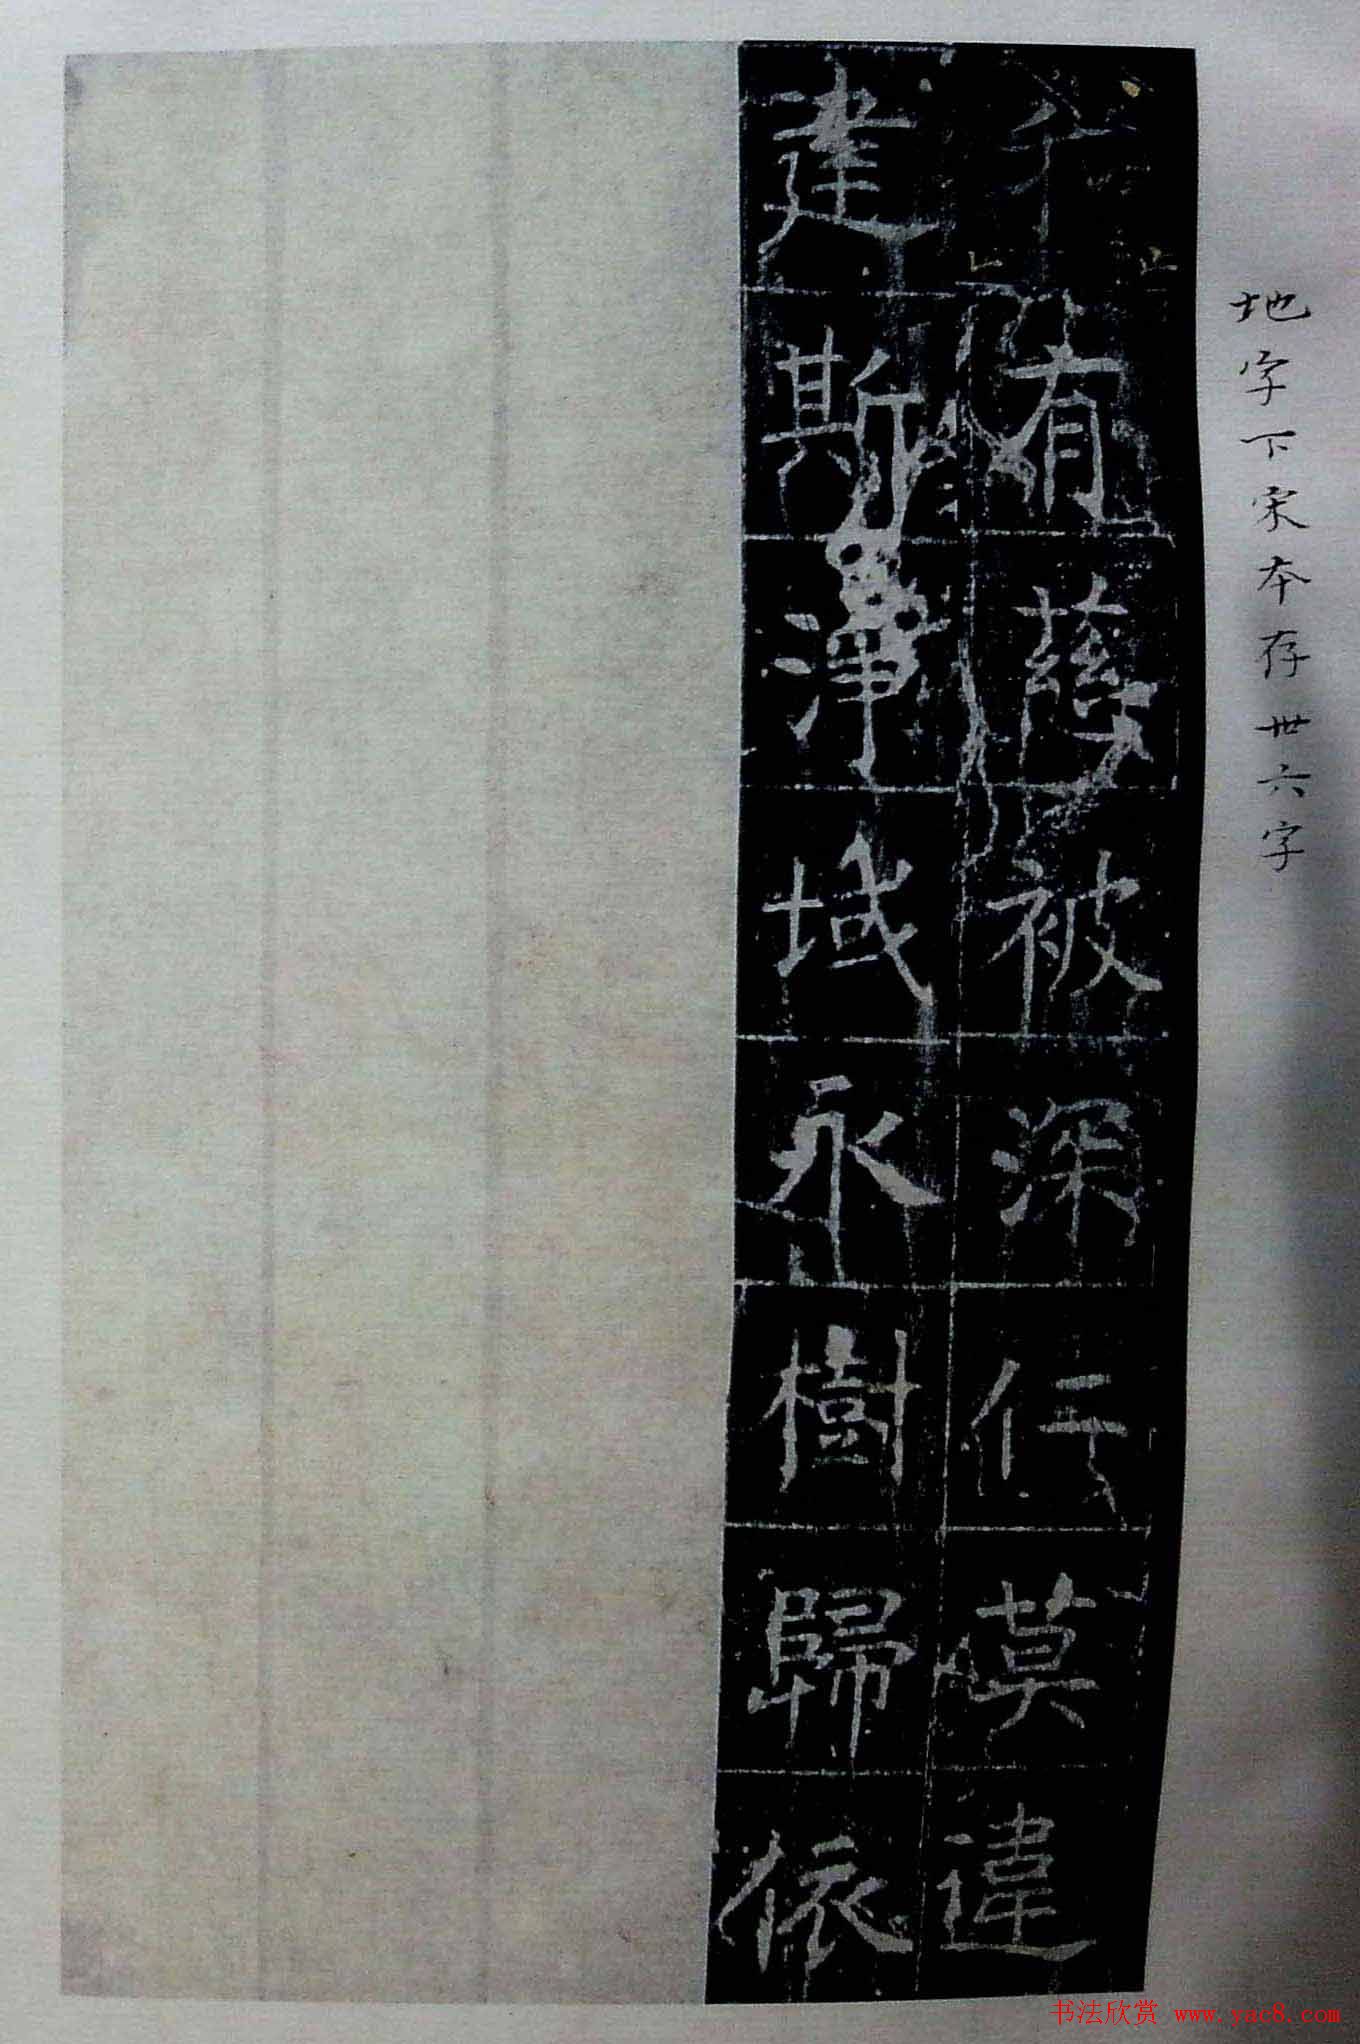 地字下宋本存世六字
有慈被深仁莫違
建斯淨域永樹歸依
书法欣赏 www.yac8.com